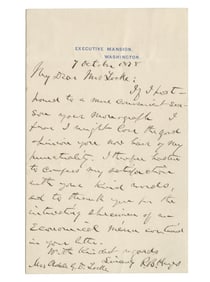 EXECUTIVE MANSION,
WASHINGTON.
7 October 1878
My Dear Mrs Locke:
If I post-
poned to a more convenient sea-
son your monograph I
fear I might lose the good
opinion you now have of my
punctuality. I therefore hasten
to express my satisfaction
with your kind words,
and to thank you for the
interesting specimen of an
economical menu contained
in your letter.
With kindest regards
Sincerely R B Hayes
Mrs D. Locke